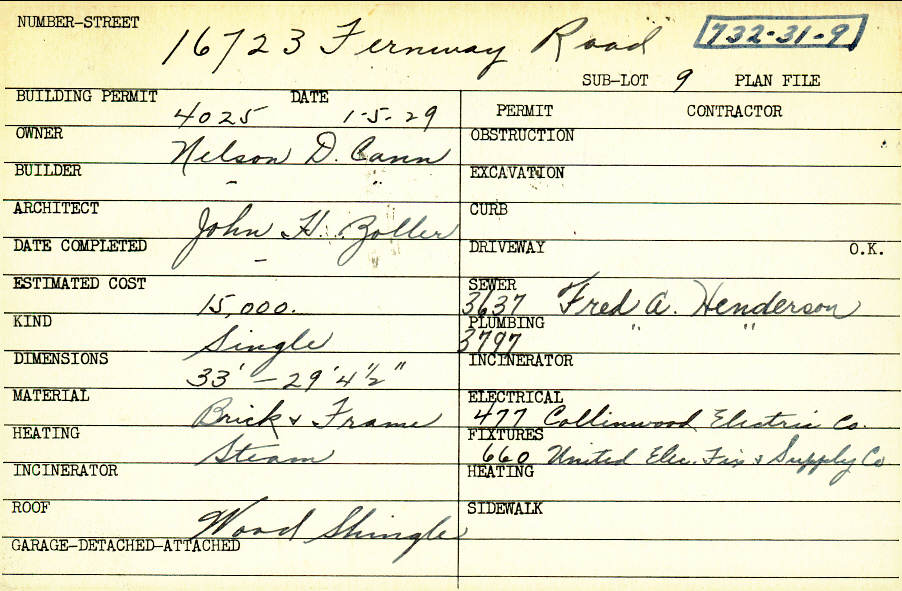 NUMBER-STREET
16723 Fernway Road
732-31-9
SUB-LOT 9 PLAN FILE
BUILDING PERMIT DATE
4025 1-5-29
PERMIT CONTRACTOR
OWNER
Nelson D. Cann
OBSTRUCTION
BUILDER
- "
EXCAVATION
ARCHITECT
John H. Zoller
CURB
DATE COMPLETED
-
DRIVEWAY O.K.
ESTIMATED COST
15,000.
SEWER
3637 Fred A. Henderson
KIND
Single
PLUMBING
3797 " "
DIMENSIONS
33' - 29' 4 1/2"
INCINERATOR
MATERIAL
Brick & Frame
ELECTRICAL
477 Collinwood Electric Co.
HEATING
Steam
FIXTURES
660 United Elec. Fix & Supply Co
INCINERATOR
HEATING
ROOF
Wood Shingle
SIDEWALK
GARAGE-DETACHED-ATTACHED